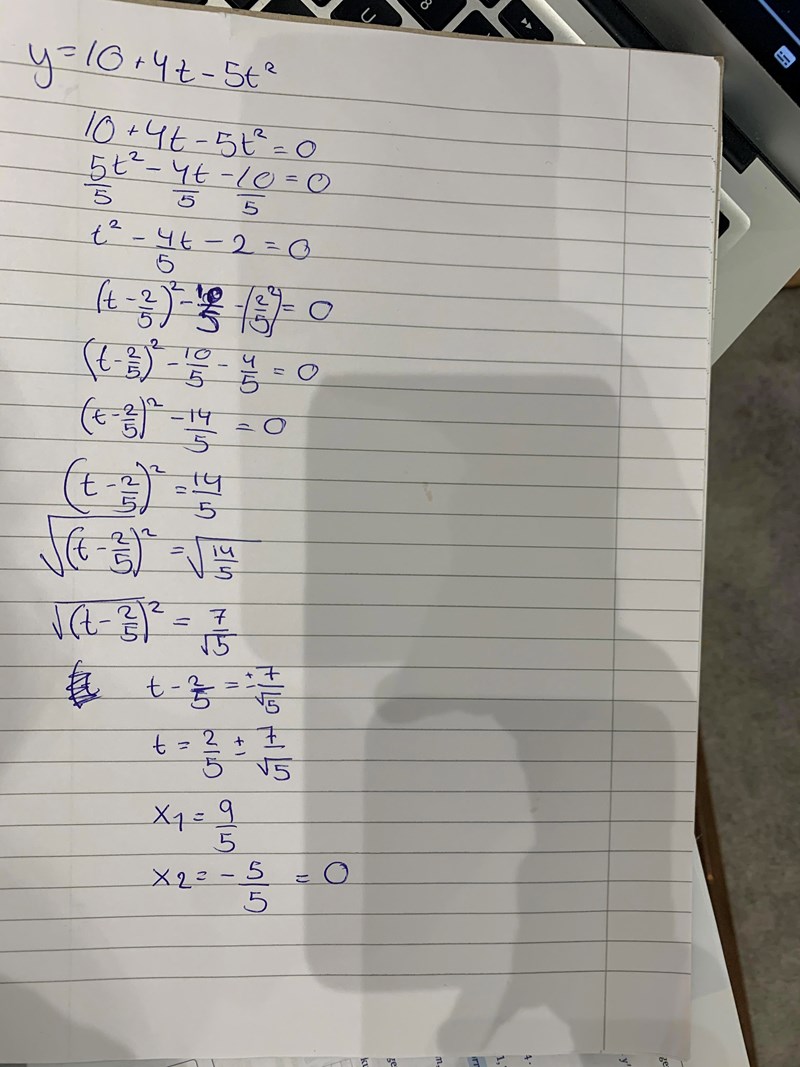 y=10+4t-5t²
10+4t-5t²=0
5t²/5 - 4t/5 - 10/5 = 0
t² - 4t/5 - 2 = 0
(t-2/5)² - 10/5 - (2/5)² = 0
(t-2/5)² - 10/5 - 4/5 = 0
(t-2/5)² - 14/5 = 0
(t-2/5)² = 14/5
√(t-2/5)² = √14/5
√(t-2/5)² = 7/√5
t - 2/5 = ±7/√5
t = 2/5 ± 7/√5
x1 = 9/5
x2 = -5/5 = 0